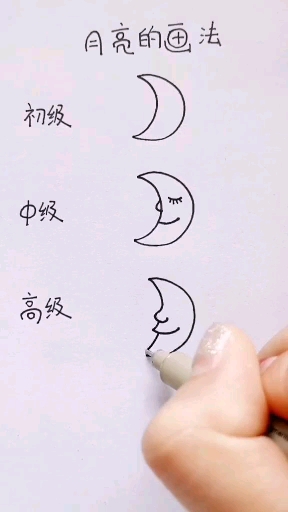 月亮的画法
初级
中级
高级